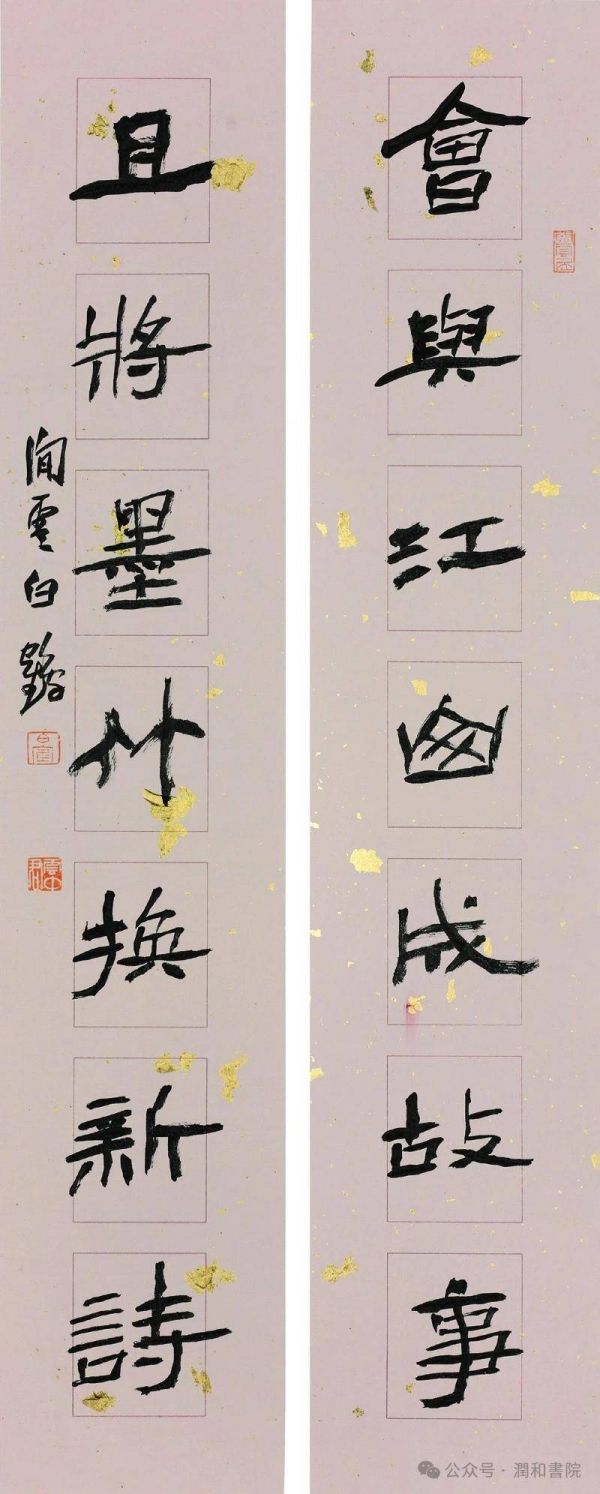 會與江成故事
且將墨竹換新詩
閒雲白鶴
公众号·潤和書院